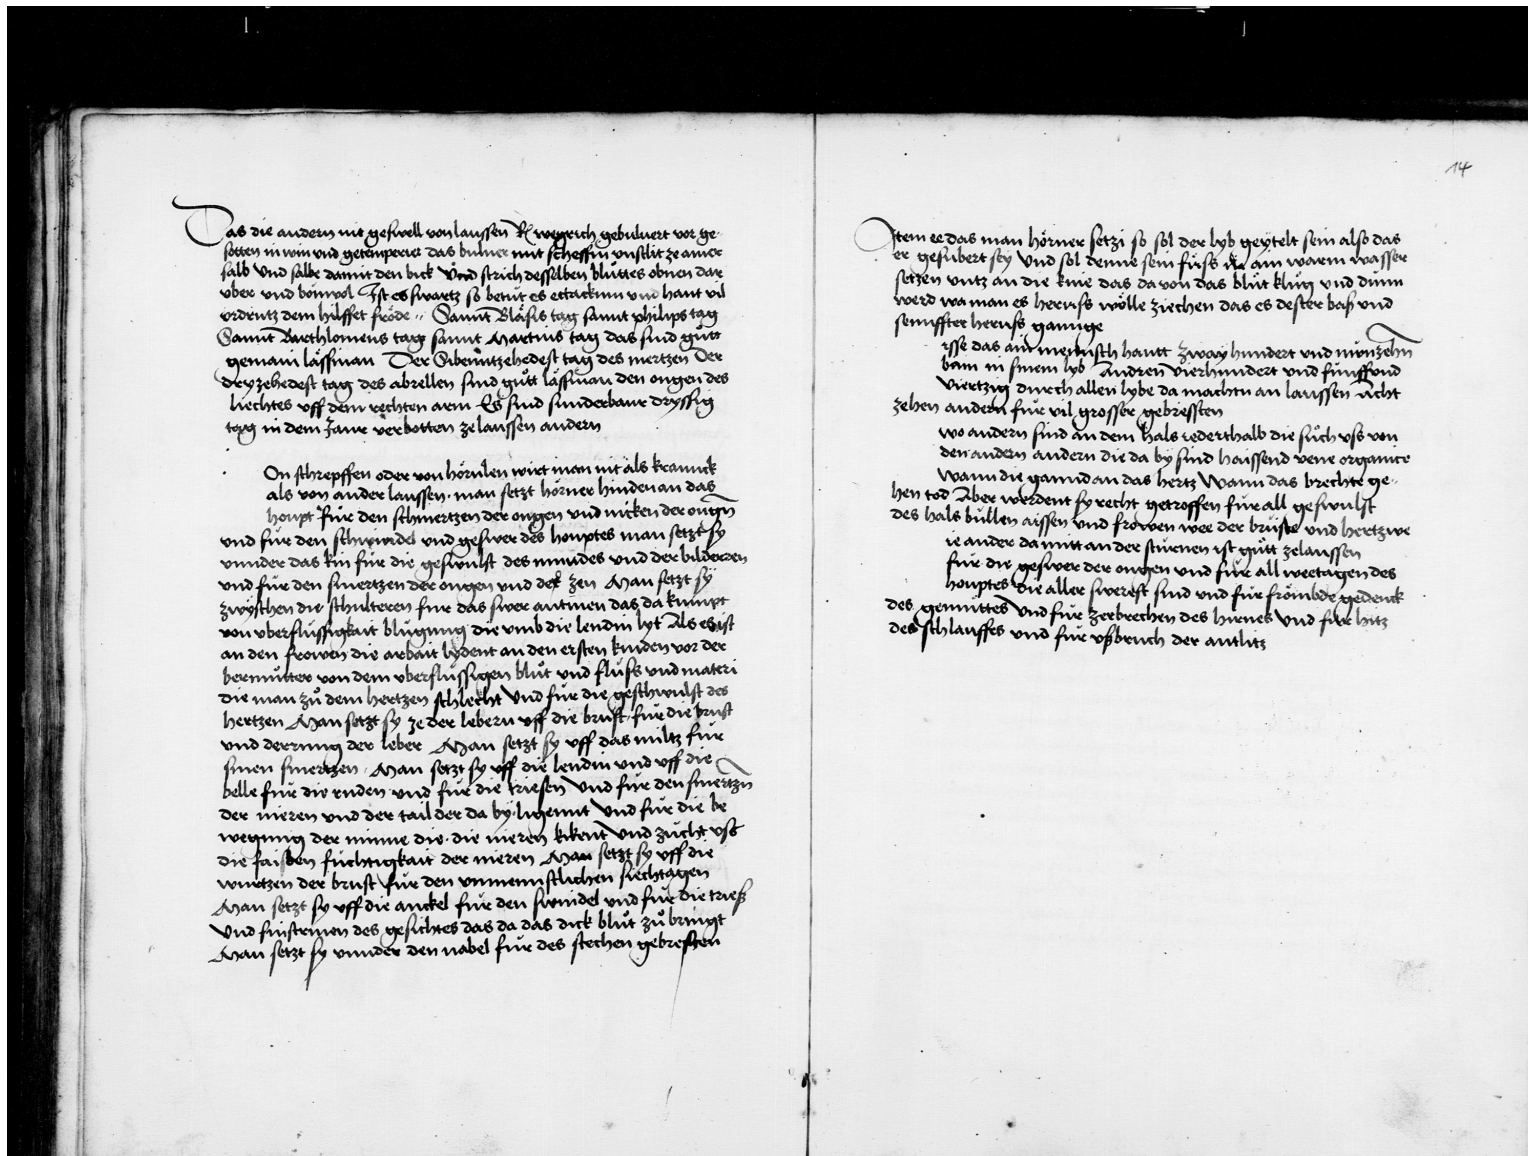 Das die andern nit geswell von laussen Rx wegrich gebuluert vor ge-
sotten in win und getemperier das buluer mit scheffin unslit ze ainer
salb Und salbe damit den bick Und strich desselben bluttes obnen dar
uber und bonwol Ist es swartz so betut es und hant vil
urdrutz dem hilffet fröde Sannt Bläsis tag sannt philips tag
Sannt Barthlomeus tag sannt Martins tag das sind gůtt
gemain lässinan Der Sibenntzehedest tag des mertzen Der
dryzehedest tag des abrellen sind gůtt lässinan den ougen des
liechtes uff dem rechten arm Es sind sunderbaur dryssig
tag in dem Jaur verbotten ze laussen andern
On schrepffen oder von hörnlen wirt man nit als kranck
als von ander laussen man setzt hörner hinden an das
houpt Für den schmertzen der ougen und nicken der ougn
und für den schwindel und geswer des houptes man setzt sy
unnder das kin für die geswulst des mundes und der bilderen
und für den smertzen der ougen und der zen Man setzt sy
zwyschen die schulteren für das swer autmen das da kumpt
von uberflüssigkait blůgung die umb die lendin lyt Als es ist
an den frowen die arbait lydent an den ersten kinden vor der
bermůtter von dem uberflüssigen blůt und fluss und materi
die man zů dem hertzen schlecht Und für die geschwulst des
hertzen Man setzt sy ze der lebern uff die brust für die brust
und derrung der leber Man setzt sy uff das miltz für
sinen smertzen Man setzt sy uff die lendin und uff die
belle für die ruden und für die triesen Und für den smertzn
der nieren und der tail der da by ligennt Und für die be
wegung der minne die die nieren kikent Und zücht uss
die faisten füchtigkait der nieren Man setzt sy uff die
wurtzen der brust für den unmenschlichen siechtagen
Man setzt sy uff die anckel für den swindel und für die trieß
Und finstrinen des gesichtes das da das dick blůt zů bringt
Man setzt sy unnder den nabel für des stechen gebresten
14
Item ee das man hörner setzi so sol der lyb geytelt sein also das
er gesubert sey Und sol denne sein füss in ain warm wasser
setzen untz an die knie das da von das blůt klůg und dünn
werd wa man es heruss wölle ziechen das es dester baß und
senffter heruss gannge
isse das ain mennsch hautt zway hundert und nünzehn
bain in sinem lyb Andren vierhundert und fünffund
viertzig durch allen lybe da machtu an laussen Acht
zehen andern für vil grosser gebressten
wo andern sind an dem hals iederthalb die such uss von
den andern andern die da by sind haissend vene organice
Wann die gannd an das hertz Wann das brechte ge-
hen tod Aber werdent sy recht getroffen für all geswulst
des hals bullen aissen und frowen wee der brüste und hertzwe
ie ander da mitt an der stürnen ist gůtt ze laussen
für die geswer der ougen und für all weetagen des
houptes die aller swerest sind und für frömbde gedenck
des gemüttes Und für zerbrechen des hirnes Und für hitz
des schlauffes und für ußbruch der antlitz